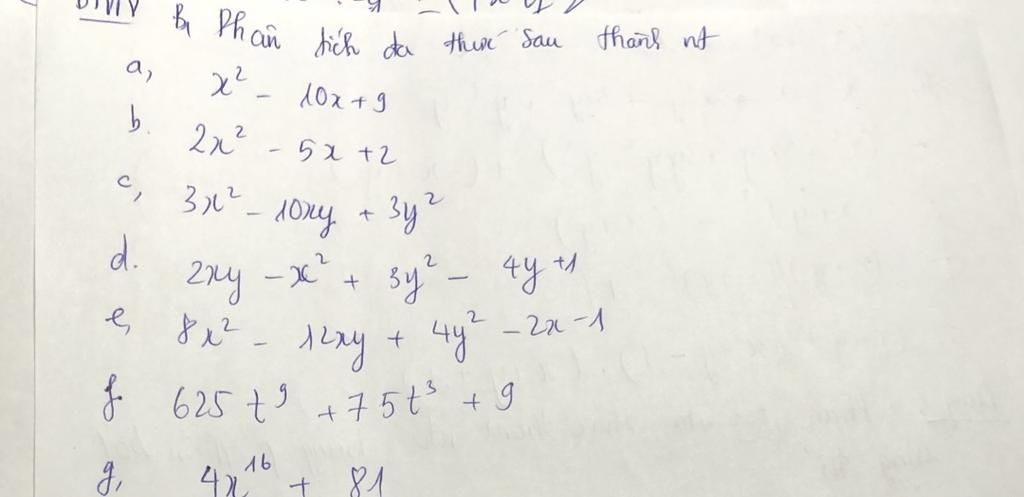 BTVN B1 Phân tích đa thức sau thành nt
a, x² - 10x + 9
b. 2x² - 5x + 2
c, 3x² - 10xy + 3y²
d. 2xy - x² + 3y² - 4y + 1
e, 8x² - 12xy + 4y² - 2x - 1
f. 625t⁹ + 75t³ + 9
g, 4x¹⁶ + 81